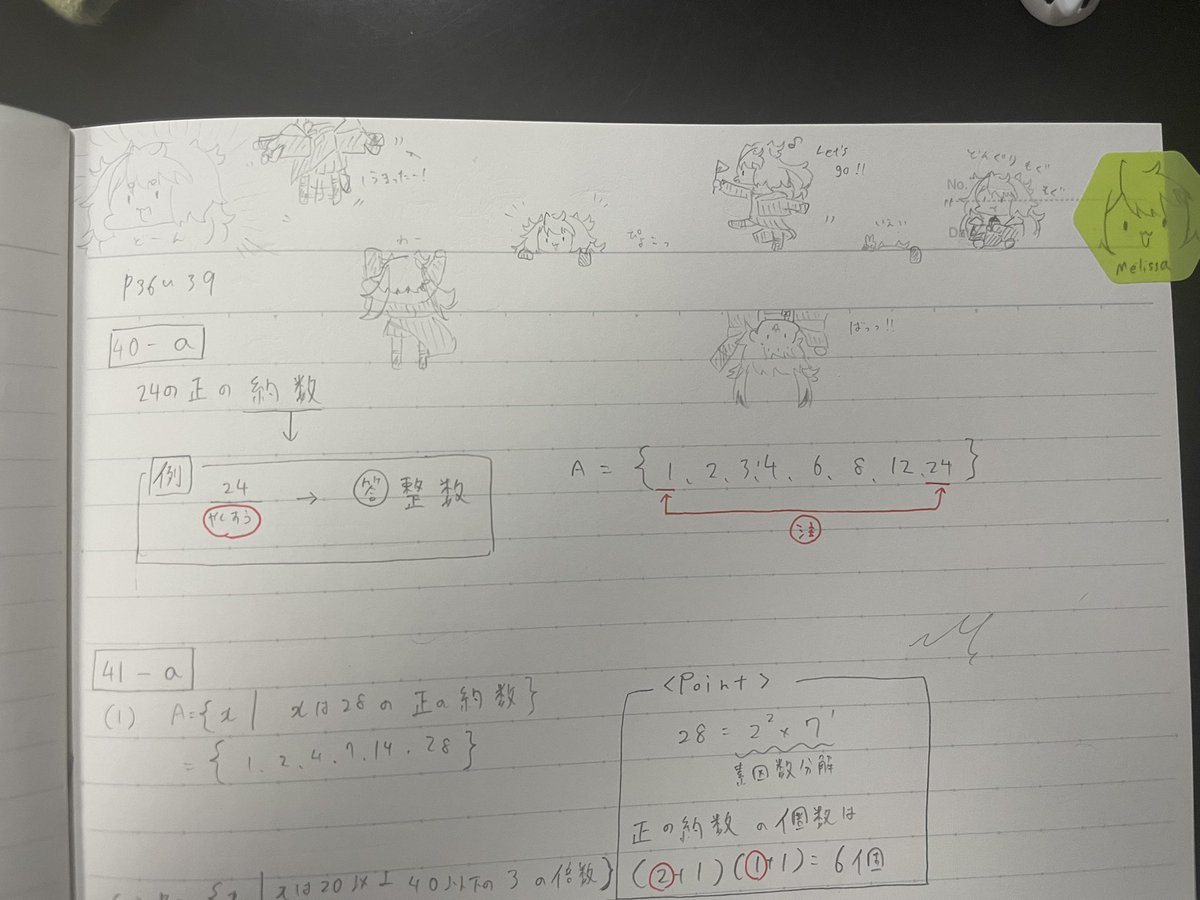 うまったー!
どーん
Let's go!!
どんぐり もぐ もぐ
No.
わー
ぴょこっ
いえい
Melissa
P36〜39
ばっっ!!
40-a
24の正の約数
↓
例
24
やくすう
→ 答 整数
A = {1、2、3、4、6、8、12、24}
注
41-a
(1) A={x | xは28の正の約数}
= {1、2、4、7、14、28}
<Point>
28 = 2² × 7¹
素因数分解
正の約数の個数は
(2+1)(1+1)=6個
{x | xは20以上40以下の3の倍数}